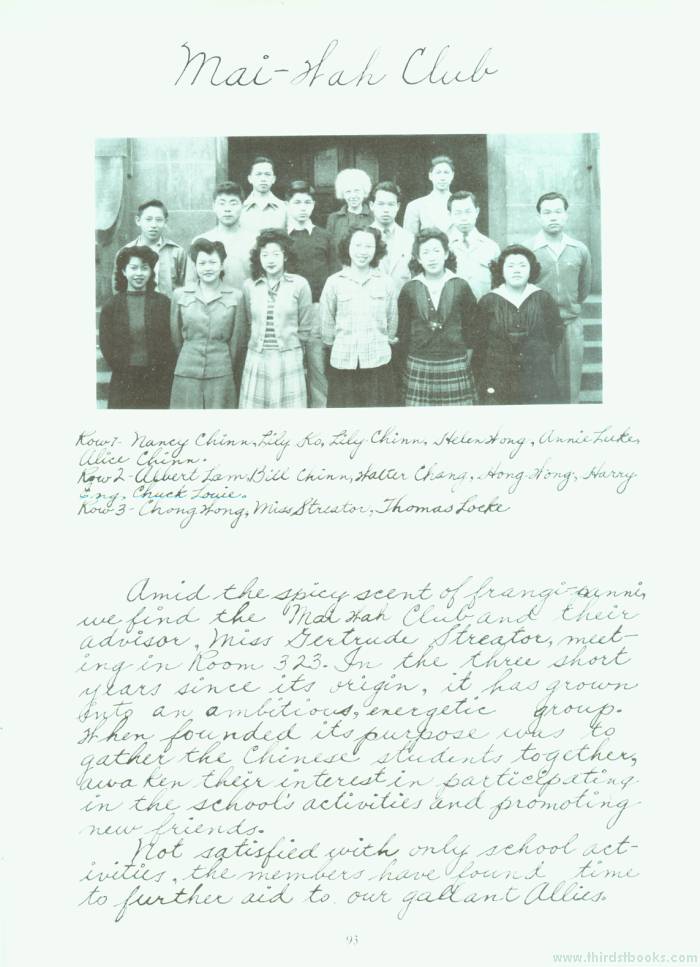 Mai-Wah Club
Row 1- Nancy Chinn, Lily Ko, Lily Chinn, Helen Wong, Annie Luke,
Alice Chinn.
Row 2- Albert Lam, Bill Chinn, Walter Chang, Hong Wong, Harry
Eng, Chuck Louie.
Row 3- Chong Wong, Miss Streator, Thomas Locke
Amid the spicy scent of
we find the Mai Wah Club and their
advisor, Miss Gertrude Streator, meet-
ing in Room 323. In the three short
years since its origin, it has grown
into an ambitious, energetic group.
When founded its purpose was to
gather the Chinese students together,
awaken their interest in participating
in the school's activities and promoting
new friends.
Not satisfied with only school act-
ivities, the members have found time
to further aid to our gallant Allies.
93
www.thirdstbooks.com